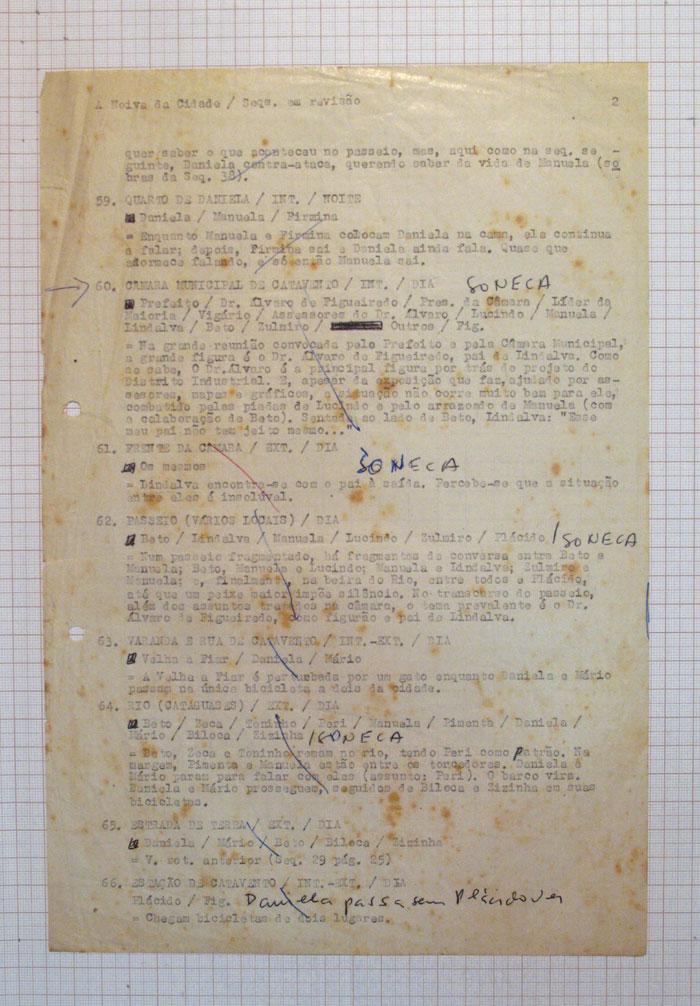 A Noiva da Cidade / Seqs. em revisão 2
quer saber o que aconteceu no passeio, mas, aqui como na seq. se -
guinte, Daniela contra-ataca, querendo saber da vida de Manuela (so
bras da Seq. 38).
59. QUARTO DE DANIELA / INT. / NOITE
Daniela / Manuela / Firmina
= Enquanto Manuela e Firmina colocam Daniela na cama, ela continua
a falar; depois, Firmina sai e Daniela ainda fala. Quase que
adormece falando, e só então Manuela sai.
60. CÂMARA MUNICIPAL DE CATAVENTO / INT. / DIA SONECA
Prefeito / Dr. Álvaro de Figueiredo / Pres. da Câmara / Líder da
Maioria / Vigário / Assessores do Dr. Álvaro / Lucindo / Manuela /
Lindalva / Beto / Zulmiro / Outros / Fig.
= Na grande reunião convocada pelo Prefeito e pela Câmara Municipal,
a grande figura é o Dr. Álvaro de Figueiredo, pai de Lindalva. Como
se sabe, O Dr.Álvaro é a principal figura por trás do projeto do
Distrito Industrial. E, apesar da exposição que faz, ajudado por as-
sessores, mapas e gráficos, a situação não corre muito bem para ele,
combatido pelas piadas de Lucindo e pelo arrazoado de Manuela (com
a colaboração de Beto). Sentada ao lado de Beto, Lindalva: "Esse
meu pai não tem jeito mesmo..."
61. FRENTE DA CÂMARA / EXT. / DIA
SONECA
Os mesmos
= Lindalva encontra-se com o pai à saída. Percebe-se que a situação
entre eles é insolúvel.
62. PASSEIO (VÁRIOS LOCAIS) / DIA
Beto / Lindalva / Manuela / Lucindo / Zulmiro / Plácido / SONECA
= Num passeio fragmentado, há fragmentos de conversa entre Beto e
Manuela; Beto, Manuela e Lucindo; Manuela e Lindalva; Zulmiro e
Manuela; e, finalmente, na beira do Rio, entre todos e Plácido,
até que um peixe maior impõe silêncio. No transcurso do passeio,
além dos assuntos tratados na câmara, o tema prevalente é o Dr.
Álvaro de Figueiredo, como figurão e pai de Lindalva.
63. VARANDA E RUA DE CATAVENTO / INT.-EXT. / DIA
Velha a Fiar / Daniela / Mário
= A Velha a Fiar é perturbada por um gato enquanto Daniela e Mário
passam na única bicicleta a dois da cidade.
64. RIO (CATAGUASES) / EXT. / DIA
Beto / Zeca / Toninho / Peri / Manuela / Pimenta / Daniela /
Mário / Biloca / Zizinha / SONECA
= Beto, Zeca e Toninho remam no rio, tendo Peri como patrão. Na
margem, Pimenta e Manuela estão entre os torcedores. Daniela e
Mário param para falar com eles (assunto: Peri). O barco vira.
Daniela e Mário prosseguem, seguidos de Biloca e Zizinha em suas
bicicletas.
65. ESTRADA DE TERRA / EXT. / DIA
Daniela / Mário / Beto / Biloca / Zizinha
= V. rot. anterior (Seq. 29 pág. 25)
66. ESTAÇÃO DE CATAVENTO / INT.-EXT. / DIA
Plácido / Fig. Daniela passa sem Plácido ver
= Chegam bicicletas de dois lugares.